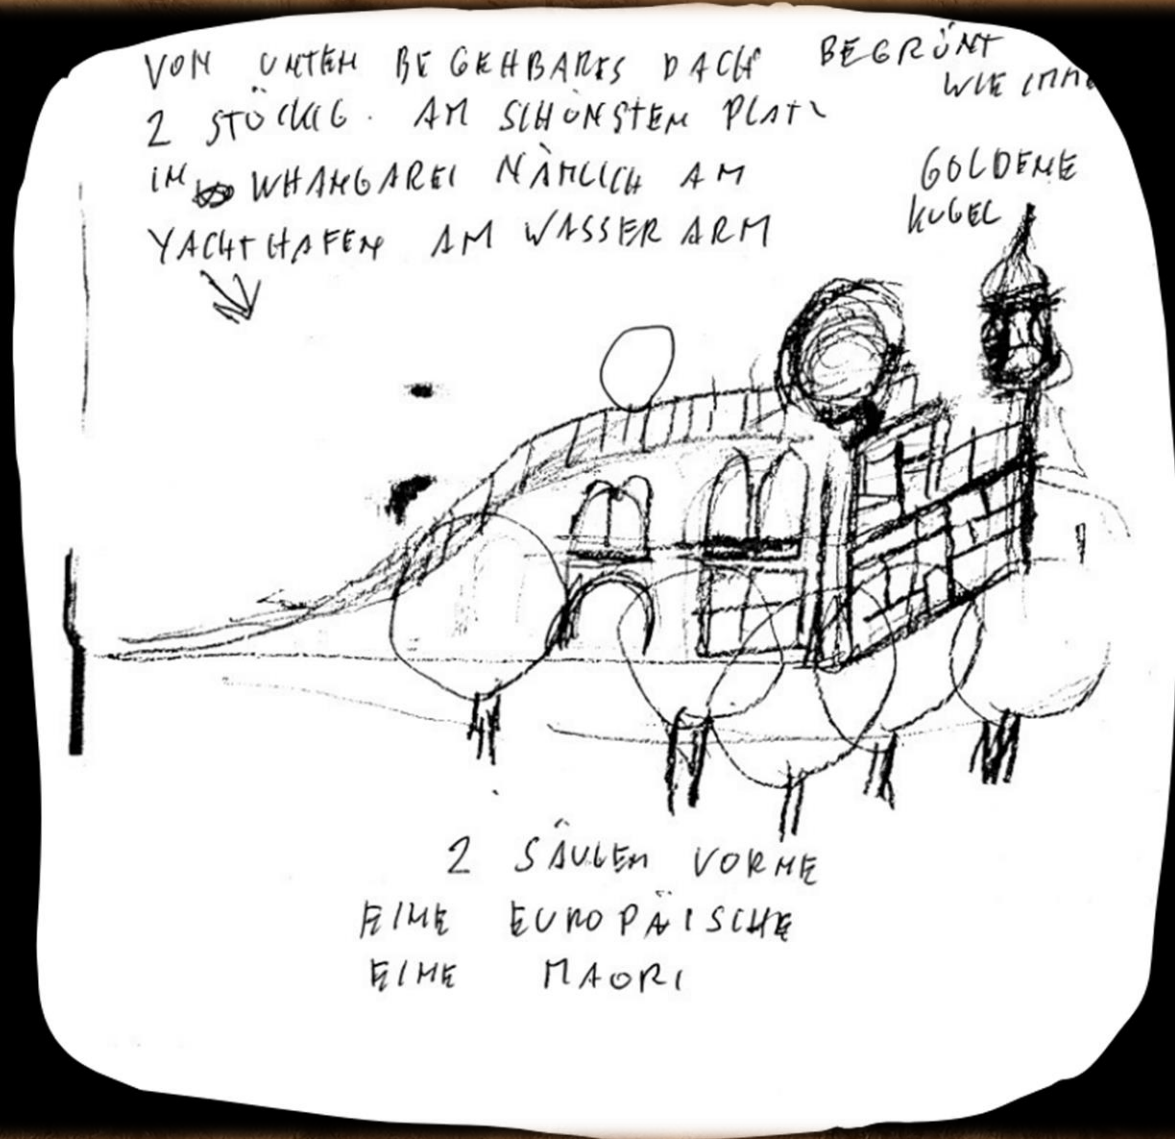 VON UNTEN BEGEHBARES DACH BEGRÜNT
WIE
2 STÖCKIG. AM SCHÖNSTEN PLATZ
IN WHANGAREI NÄMLICH AM
YACHTHAFEN AM WASSERARM
GOLDENE
KUGEL
2 SÄULEN VORNE
EINE EUROPÄISCHE
EINE MAORI